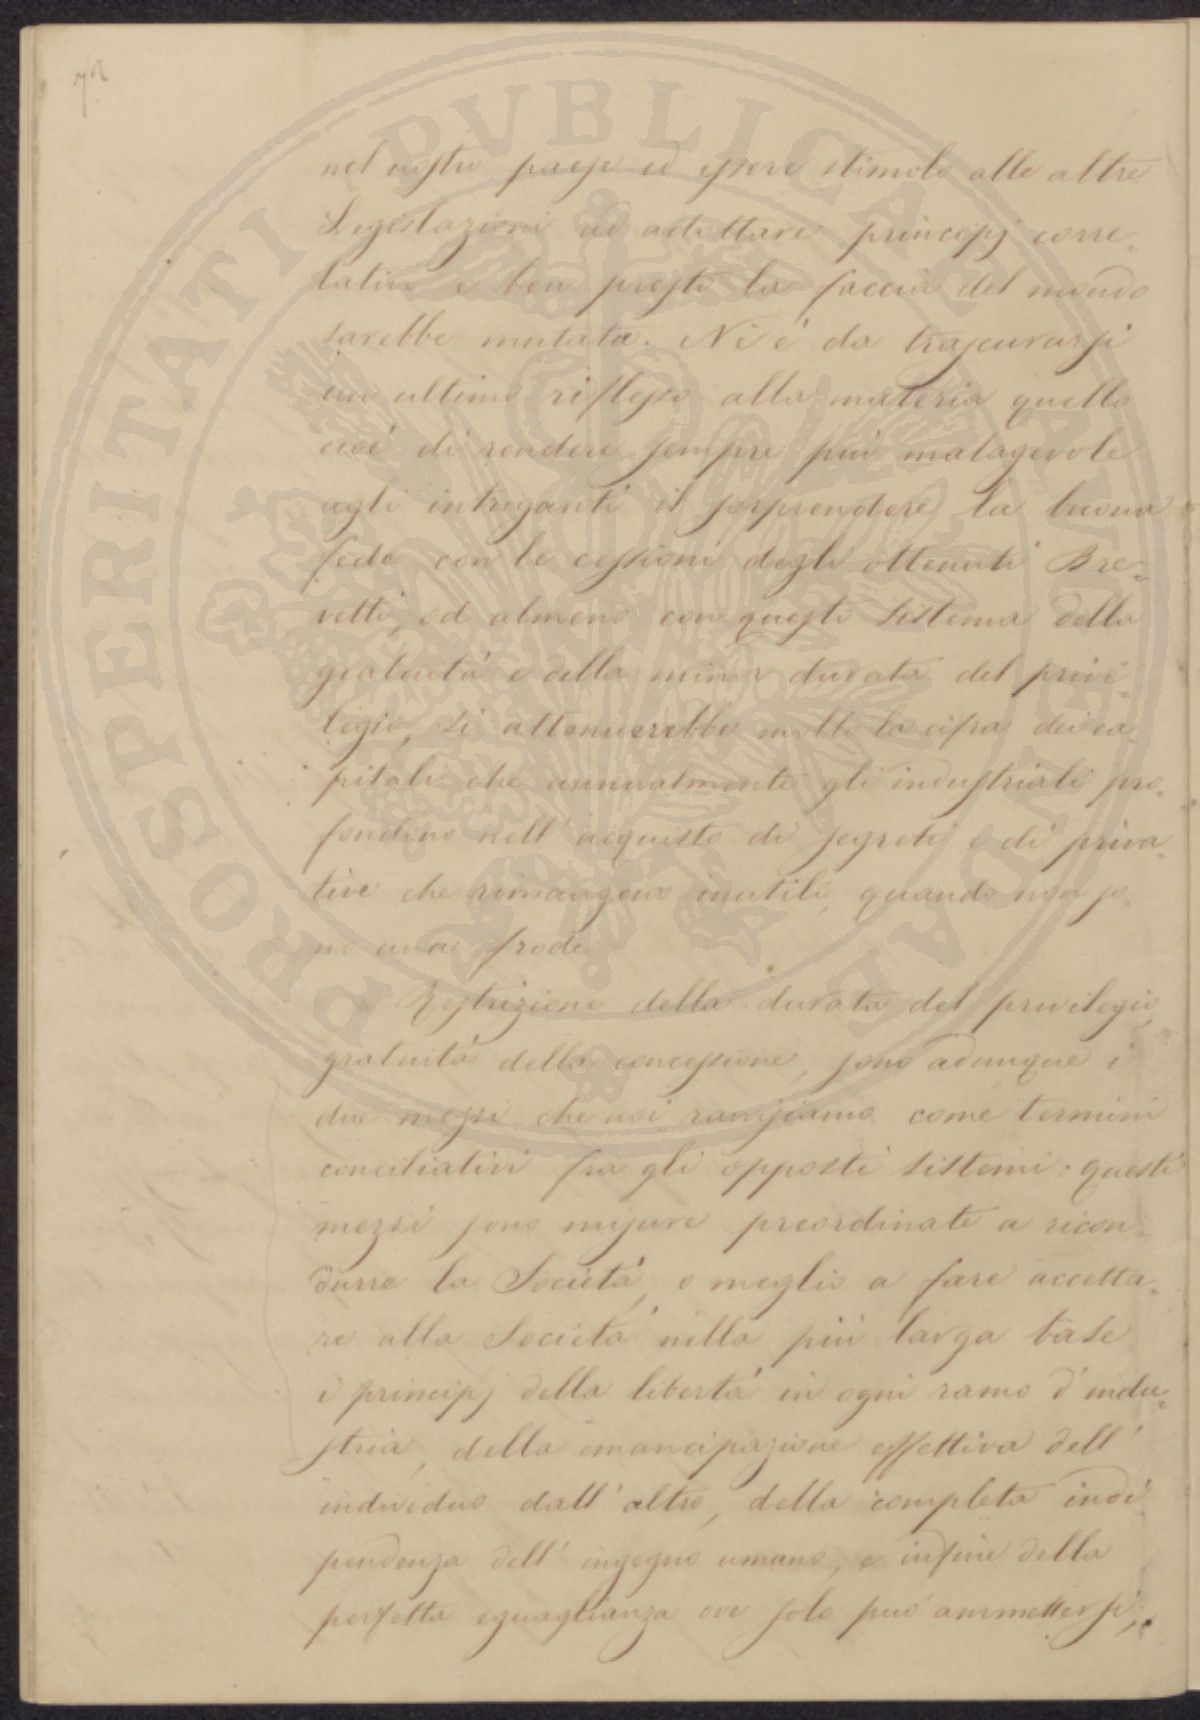 72
nel nostro paese ed essere stimolo alle altre
Legislazioni ad adottare principj corre=
lativi e ben presto la faccia del mondo
sarebbe mutata. Nè è da trascurarsi
un ultimo riflesso alla materia quello
cioè di rendere sempre più malagevole
agli intriganti il sorprendere la buona
fede con le cessioni degli ottenuti Bre=
vetti, ed almeno con questo sistema della
gratuità e della minor durata del privi=
legio, si attenuerebbe molto la cifra dei ca=
pitali che annualmente gli industriali pro=
fondino nell'acquisto di segreti e di priva=
tive che rimangono inutili, quando non so=
no una frode.
Restrizione della durata del privilegio,
gratuità della concessione, sono adunque i
due mezzi che noi ravvisiamo come termini
conciliativi fra gli opposti sistemi: questi
mezzi sono misure preordinate a ricon=
durre la Società, o meglio a fare accetta=
re alla Società nella più larga base
i principj della libertà in ogni ramo d'indu=
stria, della emancipazione effettiva dell'
individuo dall'altro, della completa indi
pendenza dell'ingegno umano, e infine della
perfetta eguaglianza ove solo può ammettersi,
PROSPERITATI PVBLICAE